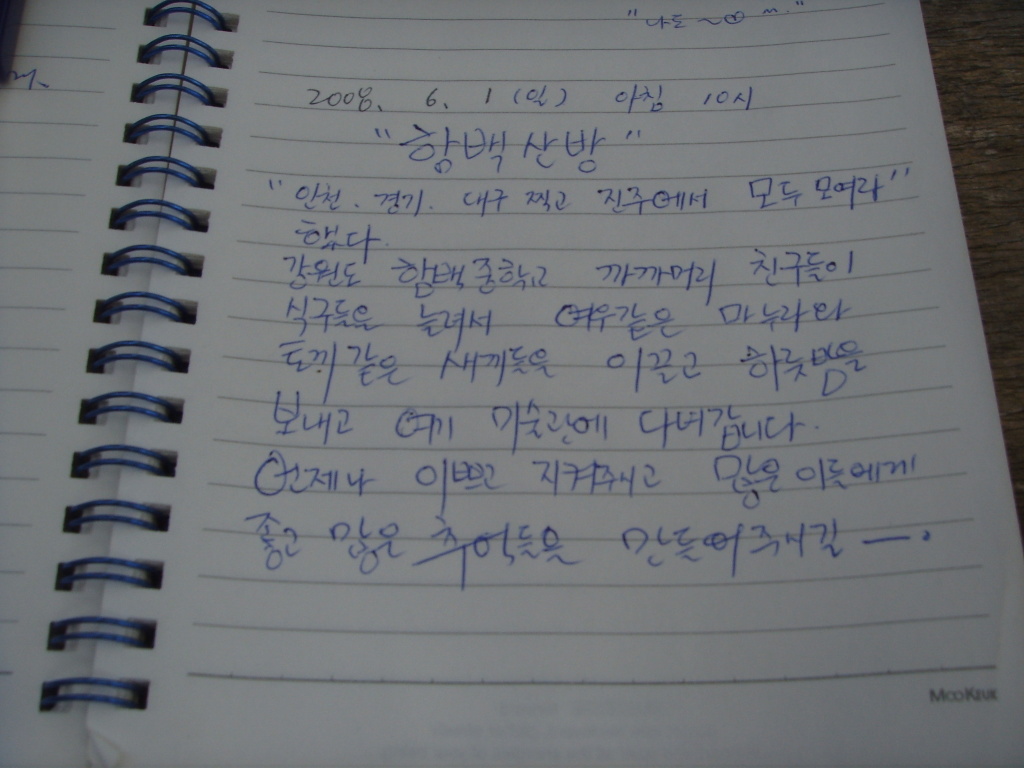 "나도 ~
2008. 6. 1 (일) 아침 10시
"함백산방"
"인천. 경기. 대구 찍고 진주에서 모두 모여라"
했다.
강원도 함백중학교 까까머리 친구들이
식구들을 늘려서 여우같은 마누라와
토끼같은 새끼들을 이끌고 하룻밤을
보내고 여기 미술관에 다녀갑니다.
언제나 이쁘고 지켜주시고 많은 이들에게
좋고 많은 추억들을 만들어주시길 —.
MOOKEUK